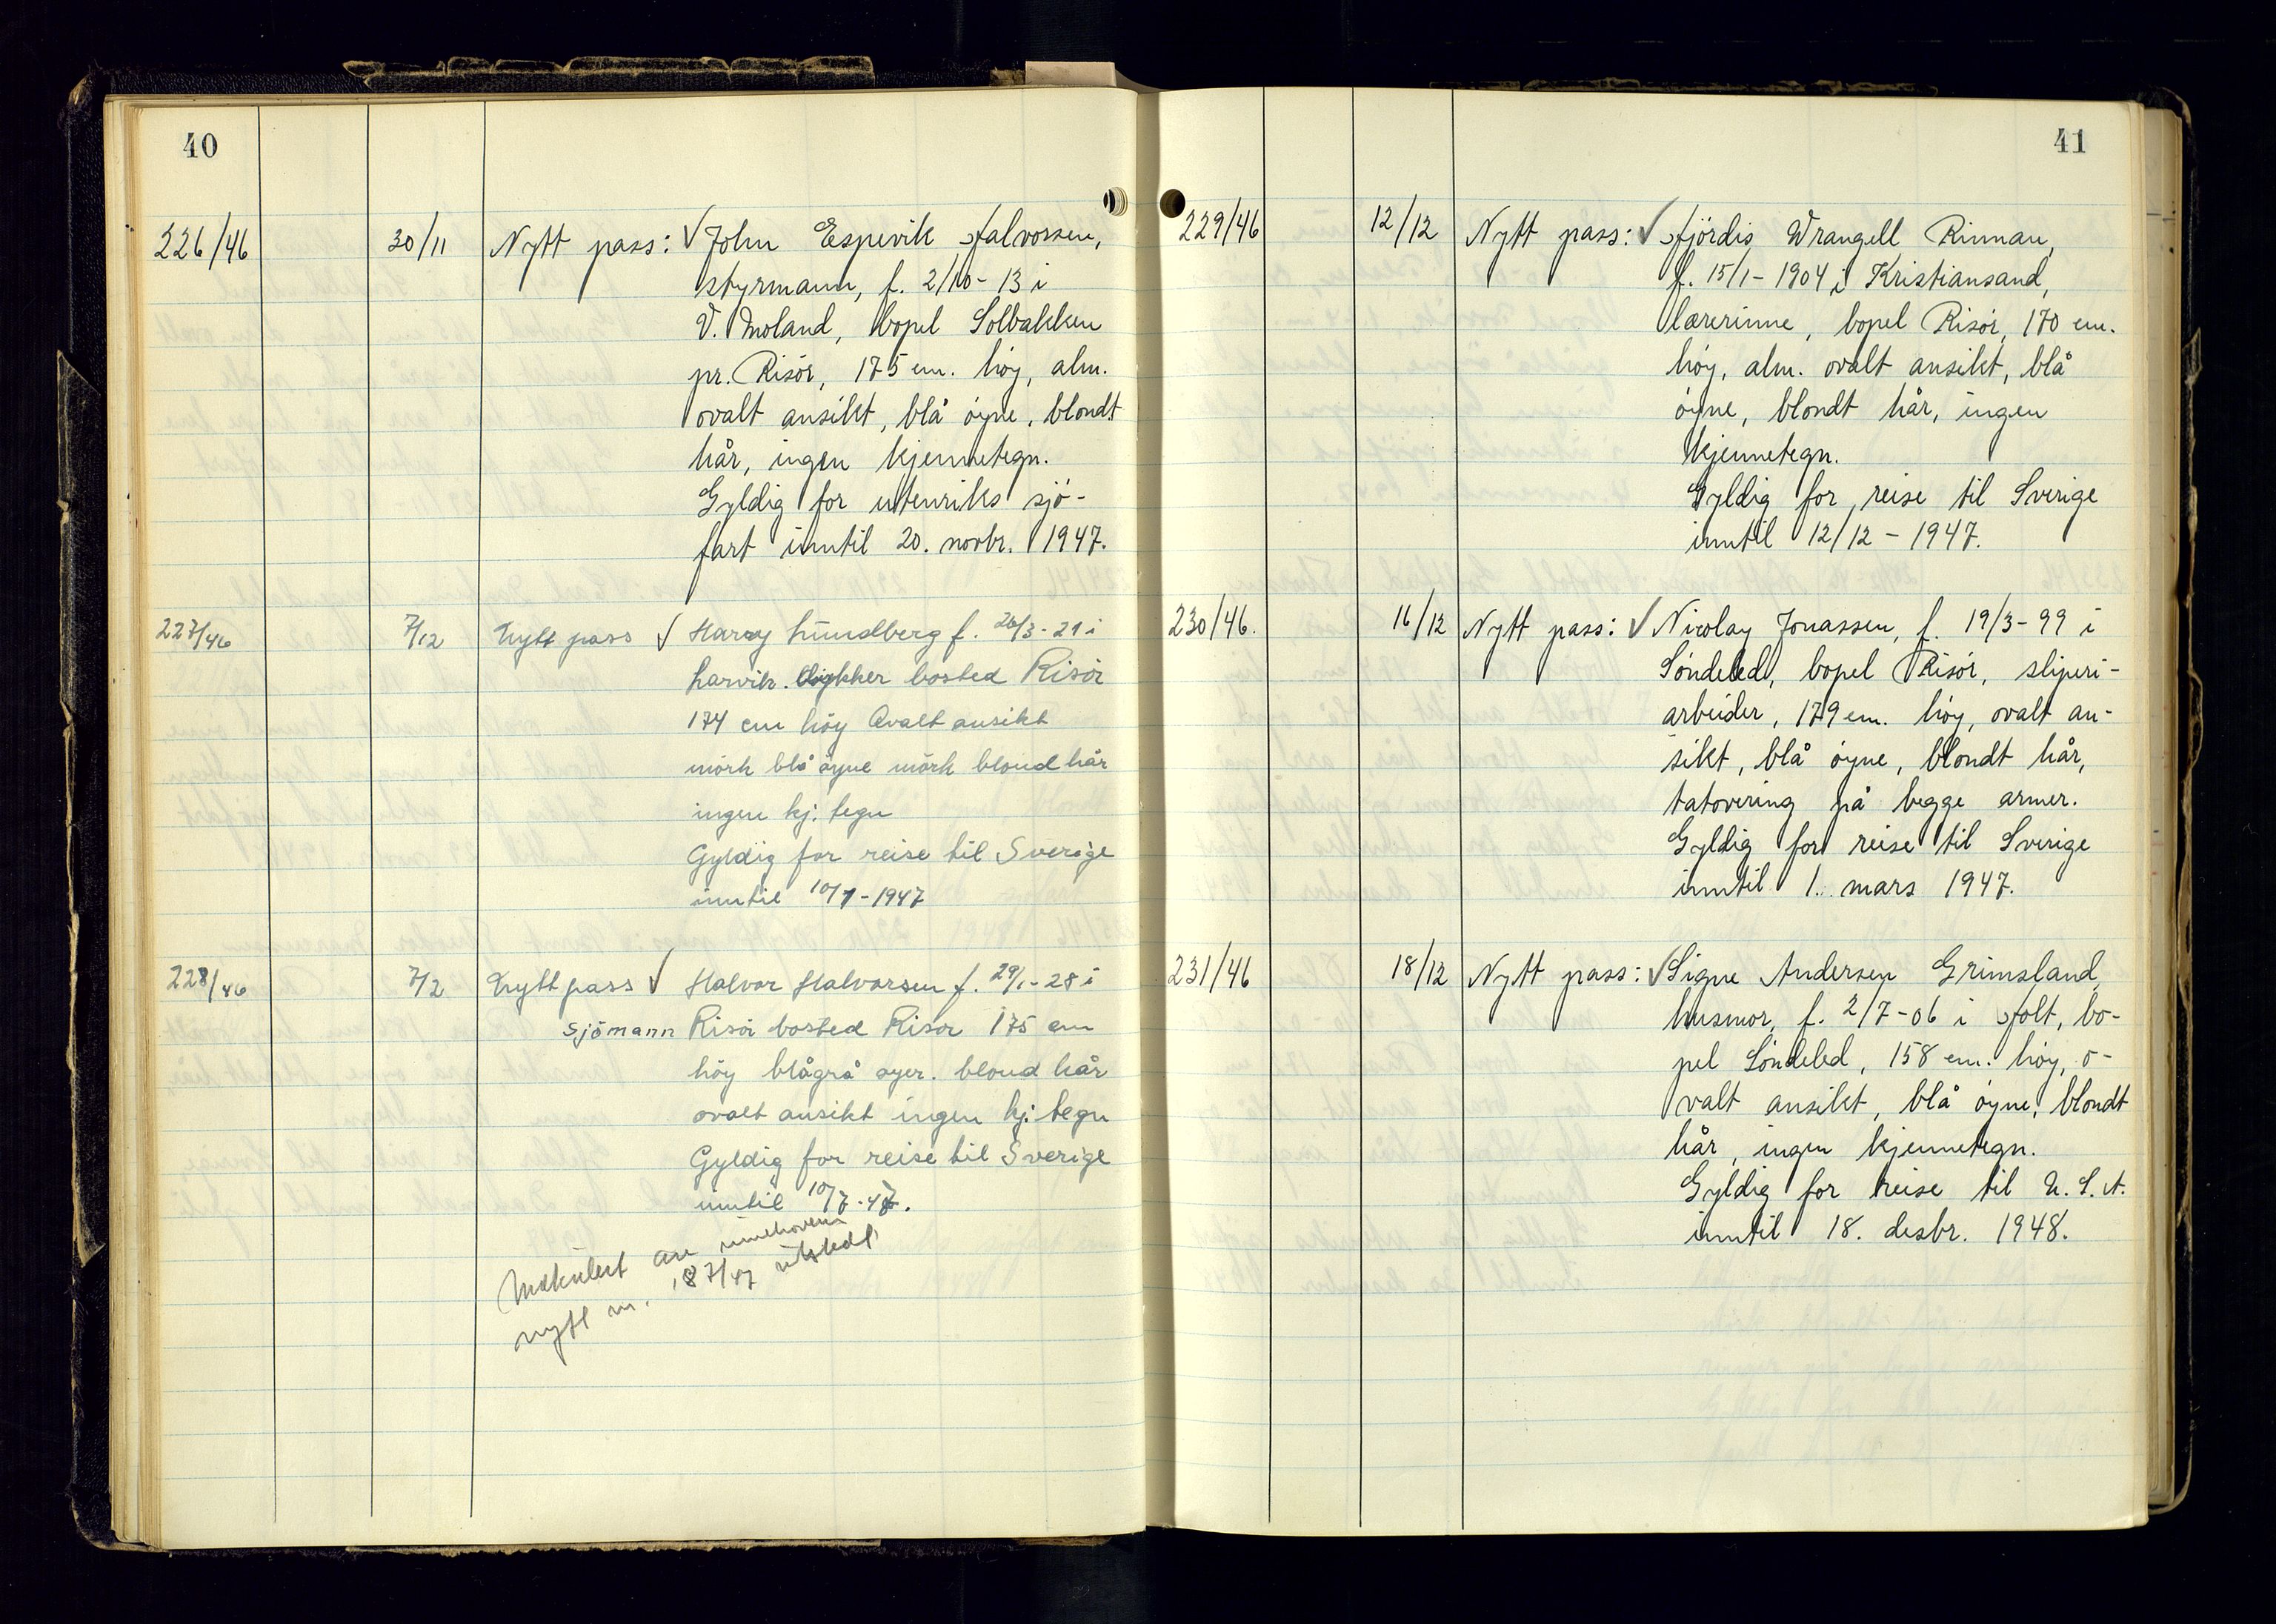 40
226/46 30/11 Nytt pass: √ John Espevik Halvorsen,
styrmann, f. 2/10-13 i
V. Moland, bopel Solbakken
pr. Risör, 175 cm. höy, alm.
ovalt ansikt, blå öyne, blondt
hår, ingen kjennetegn.
Gyldig for utenriks sjö-
fart inntil 20. novbr. 1947.
227/46 7/12 Nytt pass √ Harry Lundberg f. 26/3-21 i
Larvik. bosted Risör
174 cm höy Ovalt ansikt
mörk blå öyne mörk blond hår
ingen kj. tegn
Gyldig for reise til Sverige
inntil 10/7-1947
228/46 7/12 Nytt pass √ Halvor Halvorsen f. 29/1-28 i
Sjömann Risör bosted Risör 175 cm
höy blågrå öyer. blond hår
ovalt ansikt ingen kj. tegn
Gyldig for reise til Sverige
inntil 10/7-47.
Makulert av innehaveren
nytt nr. 187/47 utstedt
41
229/46 12/12 Nytt pass: √ Hjördis Wrangell Rinnan,
f. 15/1-1904 i Kristiansand,
lærerinne, bopel Risör, 170 cm.
höy, alm. ovalt ansikt, blå
öyne, blondt hår, ingen
kjennetegn.
Gyldig for reise til Sverige
inntil 12/12-1947.
230/46. 16/12 Nytt pass: √ Nicolay Jonassen, f. 19/3-99 i
Söndeled, bopel Risör, sliperi-
arbeider, 179 cm. höy, ovalt an-
sikt, blå öyne, blondt hår,
tatovering på begge armer.
Gyldig for reise til Sverige
inntil 1. mars 1947.
231/46 18/12 Nytt pass: √ Signe Andersen Grimsland,
husmor, f. 2/7-06 i Holt, bo-
pel Söndeled, 158 cm. höy, o-
valt ansikt, blå öyne, blondt
hår, ingen kjennetegn.
Gyldig for reise til U.S.A.
inntil 18. desbr. 1948.